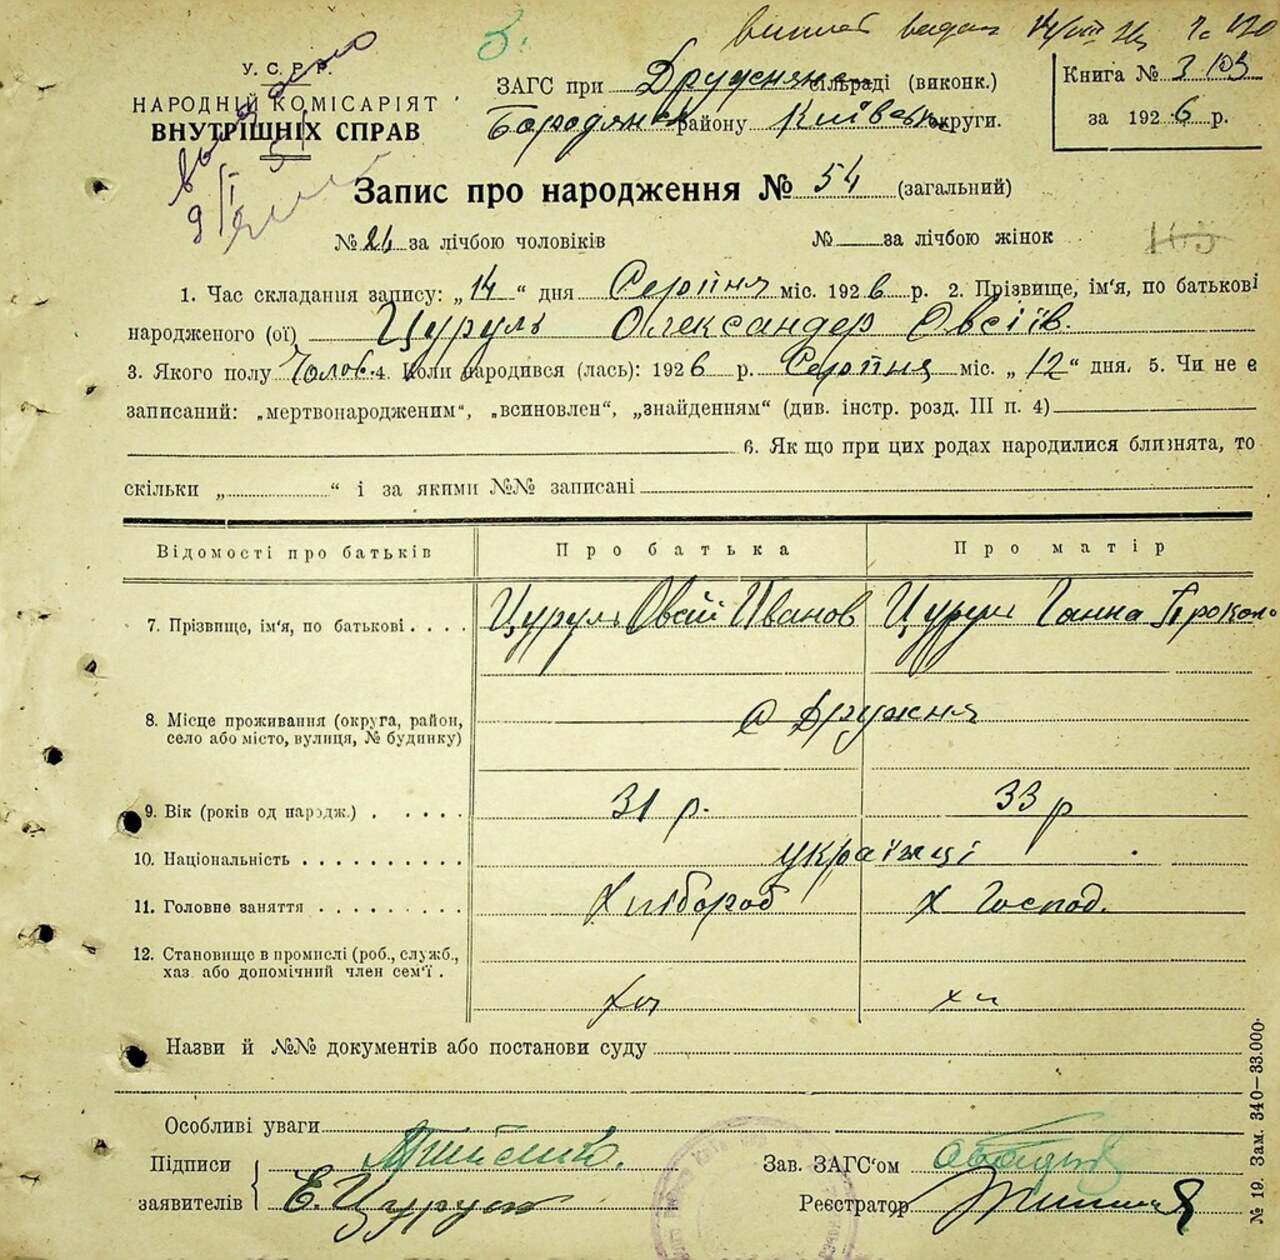 У. С. Р. Р.
НАРОДНІЙ КОМІСАРІЯТ
ВНУТРІШНІХ СПРАВ
ЗАГС при Дружнянс сільраді (виконк.)
Бородянськ району Київськ округи.
Книга № 3 103
за 1926 р.
Запис про народження № 54 (загальний)
№ 24 за лічбою чоловіків № за лічбою жінок
1. Час складання запису: „14“ дня Серпня міс. 1926 р. 2. Прізвище, ім'я, по батькові
народженого (ої) Цуруль Олександер Овсіїв.
3. Якого полу Чолов. 4. Коли народився (лась): 1926 р. Серпня міс. „12“ дня. 5. Чи не є
записаний: „мертвонародженим“, „всиновлен“, „знайденням“ (див. інстр. розд. III п. 4)
6. Як що при цих родах народилися близнята, то
скільки „ “ і за якими №№ записані
Відомості про батьків Про батька Про матір
7. Прізвище, ім'я, по батькові . . . . Цуруль Овсій Иванов Цуруль Ганна Прокоп
8. Місце проживання (округа, район,
село або місто, вулиця, № будинку) с Дружня
9. Вік (років од народж.) . . . . . 31 р. 33 р
10. Національність . . . . . . . . . . українці
11. Головне заняття . . . . . . . . . Хлібороб х Господ.
12. Становище в промислі (роб., служб.,
хаз. або допомічний член сем'ї .
Назви й №№ документів або постанови суду
Особливі уваги
Підписи
заявителів Е. Цуруль
Зав. ЗАГС'ом
Реєстратор
№ 19. Зам. 340—33.000.